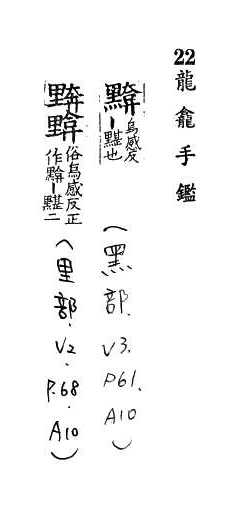 22龍龕手鑑
黭烏感反
ー黮也
(黑部.V3.P61.A10)
俗烏感反正
作黭ー黮二
(里部.V2.P.68.A10)